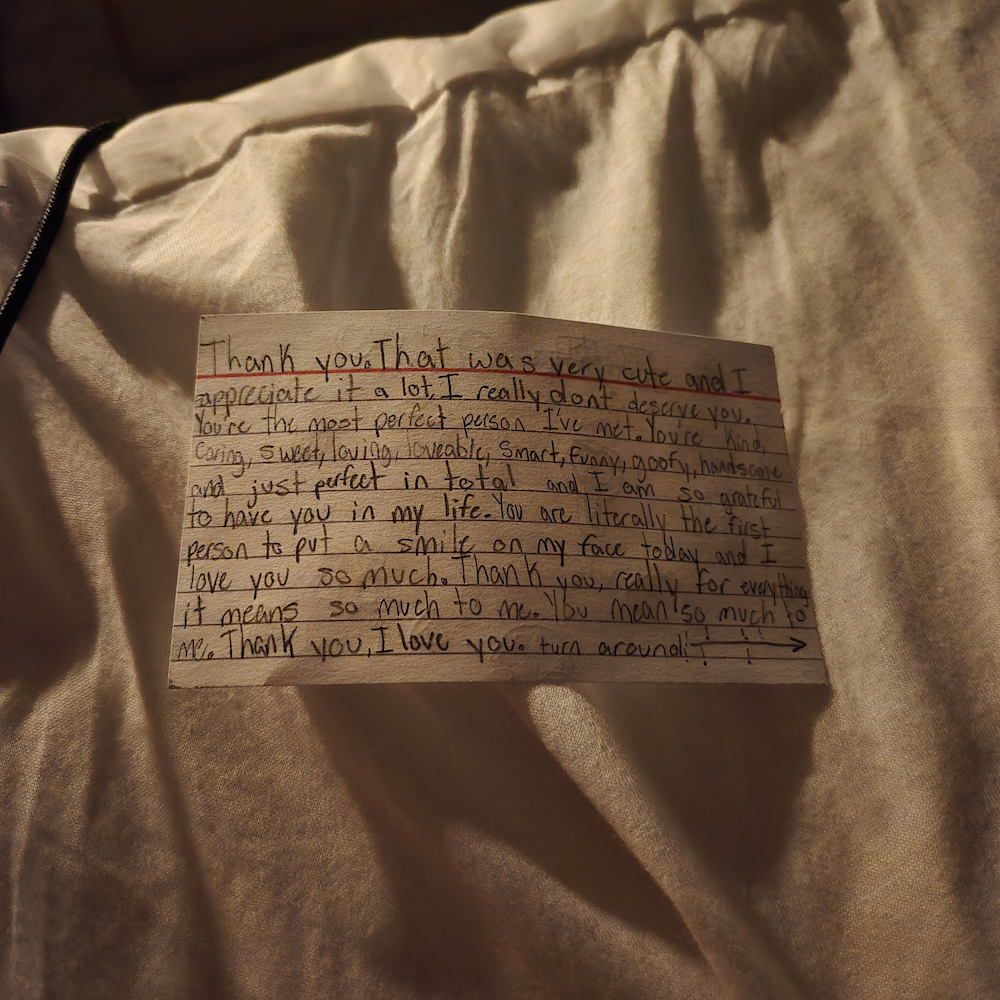 Thank you. That was very cute and I
appreciate it a lot, I really dont deserve you.
You're the most perfect person I've met. You're kind,
caring, sweet, loving, loveable, smart, funny, goofy, handsome
and just perfect in total and I am so grateful
to have you in my life. You are literally the first
person to put a smile on my face today and I
love you so much. Thank you, really for everything
it means so much to me. You mean so much to
me. Thank you, I love you. turn around!